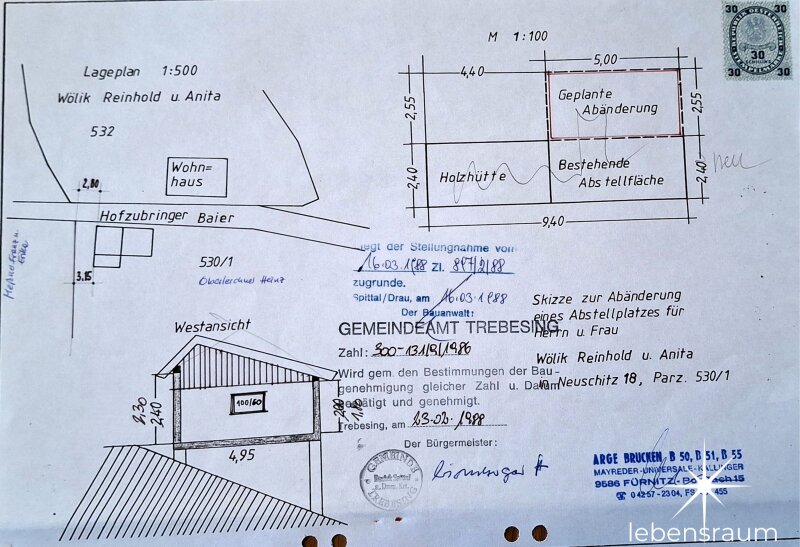 Lageplan 1:500
Wölik Reinhold u. Anita
532
Wohn=
haus
2,80
Hofzubringer Baier
3,15
530/1
M 1:100
5,00
4,40
Geplante
Abänderung
2,55
2,55
Holzhütte
Bestehende
Abstellfläche
2,40
2,40
neu
9,40
30 30
REPUBLIK ÖSTERREICH
30
SCHILLING
STEMPELMARKE
30 30
liegt der Stellungnahme vom
16.03.1988 Zl. 817/2/88
zugrunde.
Spittal/Drau, am 16.03.1988
Der Bauanwalt:
GEMEINDEAMT TREBESING
Zahl: 300-131/9/1986
Wird gem. den Bestimmungen der Bau-
genehmigung gleicher Zahl u. Datum
bestätigt und genehmigt.
Trebesing, am 23.02.1988
Der Bürgermeister:
GEMEINDE
TREBESING
Skizze zur Abänderung
eines Abstellplatzes für
Herrn u. Frau
Wölik Reinhold u. Anita
in Neuschitz 18, Parz. 530/1
Westansicht
100/60
2,30
2,40
4,95
ARGE BRÜCKEN, B 50, B 51, B 55
MAYREDER-UNIVERSALE-KALLINGER
9586 FÜRNITZ
04257-2304
lebensraum